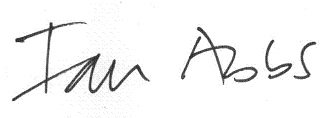 Ian Abbs